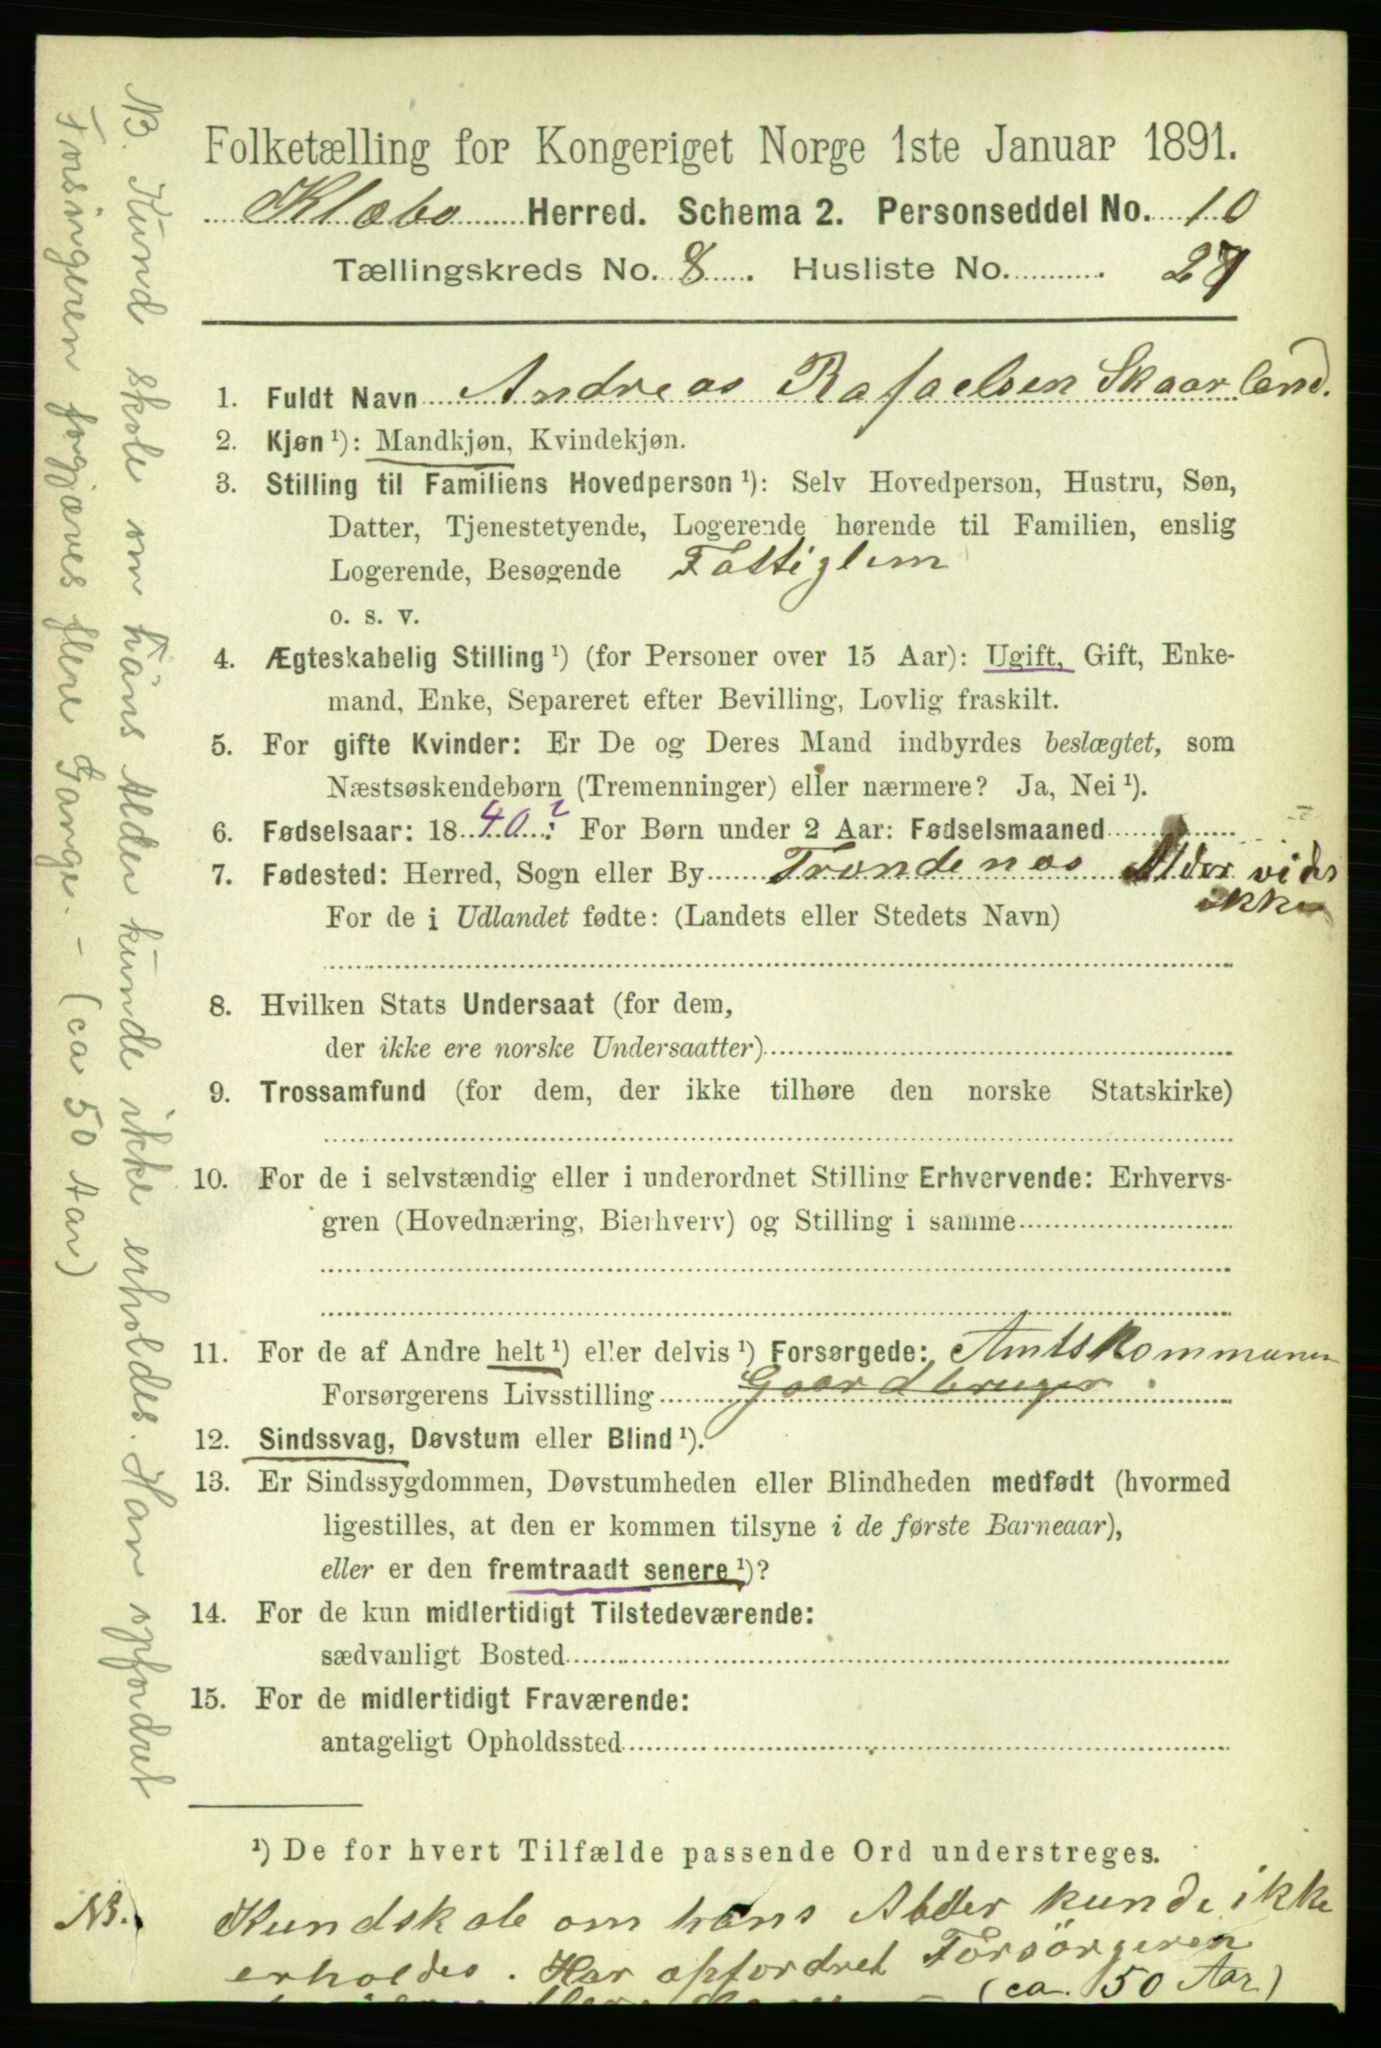 Folketælling for Kongeriget Norge 1ste Januar 1891.
Klæbo Herred. Schema 2. Personseddel No. 10
Tællingskreds No. 8. Husliste No. 27
1. Fuldt Navn Andreas Rafaelsen Skaarland.
2. Kjøn ¹): Mandkjøn, Kvindekjøn.
3. Stilling til Familiens Hovedperson ¹): Selv Hovedperson, Hustru, Søn,
Datter, Tjenestetyende, Logerende hørende til Familien, enslig
Logerende, Besøgende Fattiglem
o. s. v.
4. Ægteskabelig Stilling ¹) (for Personer over 15 Aar): Ugift, Gift, Enke-
mand, Enke, Separeret efter Bevilling, Lovlig fraskilt.
5. For gifte Kvinder: Er De og Deres Mand indbyrdes beslægtet, som
Næstsøskendebørn (Tremenninger) eller nærmere? Ja, Nei ¹).
6. Fødselsaar: 1840? For Børn under 2 Aar: Fødselsmaaned
7. Fødested: Herred, Sogn eller By Trondenæs Alder vides
ikke
For de i Udlandet fødte: (Landets eller Stedets Navn)
8. Hvilken Stats Undersaat (for dem,
der ikke ere norske Undersaatter)
9. Trossamfund (for dem, der ikke tilhøre den norske Statskirke)
10. For de i selvstændig eller i underordnet Stilling Erhvervende: Erhvervs-
gren (Hovednæring, Bierhverv) og Stilling i samme
11. For de af Andre helt ¹) eller delvis ¹) Forsørgede: Amtskommunen
Forsørgerens Livsstilling Gaardbruger
12. Sindssvag, Døvstum eller Blind ¹).
13. Er Sindssygdommen, Døvstumheden eller Blindheden medfødt (hvormed
ligestilles, at den er kommen tilsyne i de første Barneaar),
eller er den fremtraadt senere ¹)?
14. For de kun midlertidigt Tilstedeværende:
sædvanligt Bosted
15. For de midlertidigt Fraværende:
antageligt Opholdssted
¹) De for hvert Tilfælde passende Ord understreges.
NB. Kundskab om hans Alder kunde ikke
erholdes. Har opfordret Forsörgeren
(ca. 50 Aar)
NB. Kundskab om hans Alder kunde ikke erholdes. Har opfordret
Forsörgeren forgjæves flere Gange. - (ca 50 Aar)